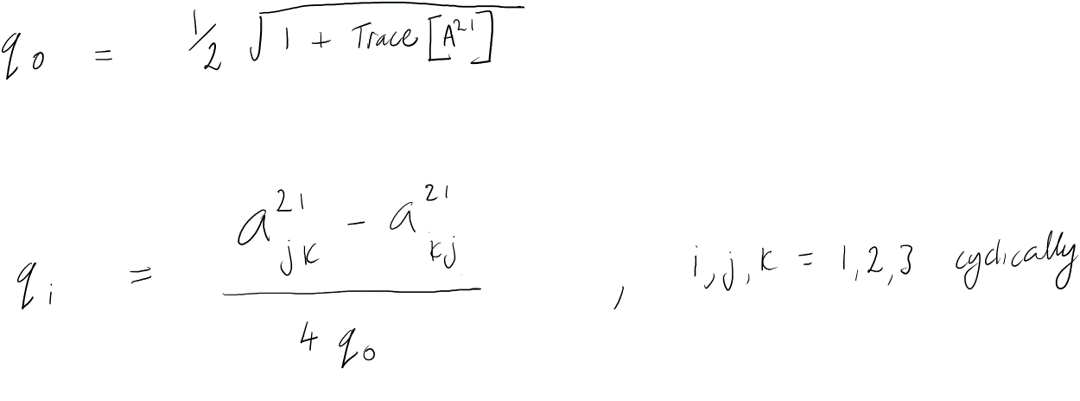 q₀ = ½ √(1 + Trace[A²¹])
qᵢ = (a²¹ⱼₖ − a²¹ₖⱼ) / (4 q₀) , i, j, k = 1, 2, 3 cyclically